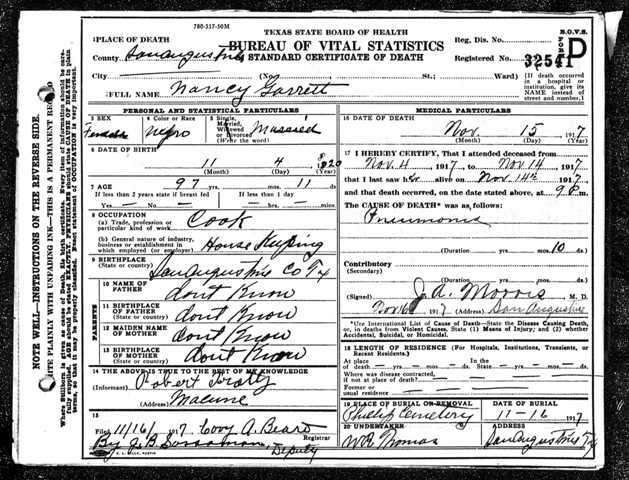 780-517-50M
TEXAS STATE BOARD OF HEALTH
BUREAU OF VITAL STATISTICS
STANDARD CERTIFICATE OF DEATH
B.O.V.S.
FORM
D
Reg. Dis. No.
Registered No. 32541
1 PLACE OF DEATH
County San Augustine
City (No. St.; Ward)
(If death occurred in a hospital or institution, give its NAME instead of street and number.)
2 FULL NAME Nancy Garrett
PERSONAL AND STATISTICAL PARTICULARS
3 SEX
Female
4 Color or Race
negro
5 Single, Married, Widowed or Divorced
(Write the word)
Married
6 DATE OF BIRTH
11 4 1820
(Month) (Day) (Year)
7 AGE 97 yrs. mos. 11 ds.
If less than 2 years state if breast fed
Yes — No —
If less than 1 day
— hrs. — min.
8 OCCUPATION
(a) Trade, profession or particular kind of work Cook
(b) General nature of industry, business or establishment in which employed (or employer) House Keeping
9 BIRTHPLACE
(State or country) San Augustine Co Tx
PARENTS
10 NAME OF FATHER don't Know
11 BIRTHPLACE OF FATHER
(State or country) don't Know
12 MAIDEN NAME OF MOTHER don't Know
13 BIRTHPLACE OF MOTHER
(State or country) don't Know
14 THE ABOVE IS TRUE TO THE BEST OF MY KNOWLEDGE
(Informant) Robert
(Address)
15
Filed 11/16/1917. Covy A. Beard
Registrar
By J. B.
Deputy
MEDICAL PARTICULARS
16 DATE OF DEATH
Nov. 15 1917
(Month) (Day) (Year)
17 I HEREBY CERTIFY, That I attended deceased from
Nov. 4 1917 to Nov 14 1917
that I last saw her alive on Nov. 14th 1917
and that death occurred, on the date stated above, at 9 P m.
The CAUSE OF DEATH* was as follows:
Pneumonia
(Duration yrs. mos. 10 ds.
Contributory
(Secondary)
(Duration) yrs. mos. ds.
(Signed) J. A. Morris M. D.
Nov 16 1917 (Address) San Augustine
*Use International List of Cause of Death—State the Disease Causing Death, or, in deaths from Violent Causes, State (1) Means of Injury; and (2) whether Accidental, Suicidal, or Homicidal.
18 LENGTH OF RESIDENCE (For Hospitals, Institutions, Transients, or Recent Residents.)
At place of death — yrs. — mos. — ds. In the State — yrs. — mos. — ds.
Where was disease contracted, if not at place of death?
Former or usual residence
19 PLACE OF BURIAL OR REMOVAL
Cemetery
DATE OF BURIAL
11-16 1917
20 UNDERTAKER
WR Thomas
ADDRESS
San Augustine Tx
NOTE WELL—INSTRUCTIONS ON THE REVERSE SIDE.
WRITE PLAINLY WITH UNFADING INK—THIS IS A PERMANENT RECORD